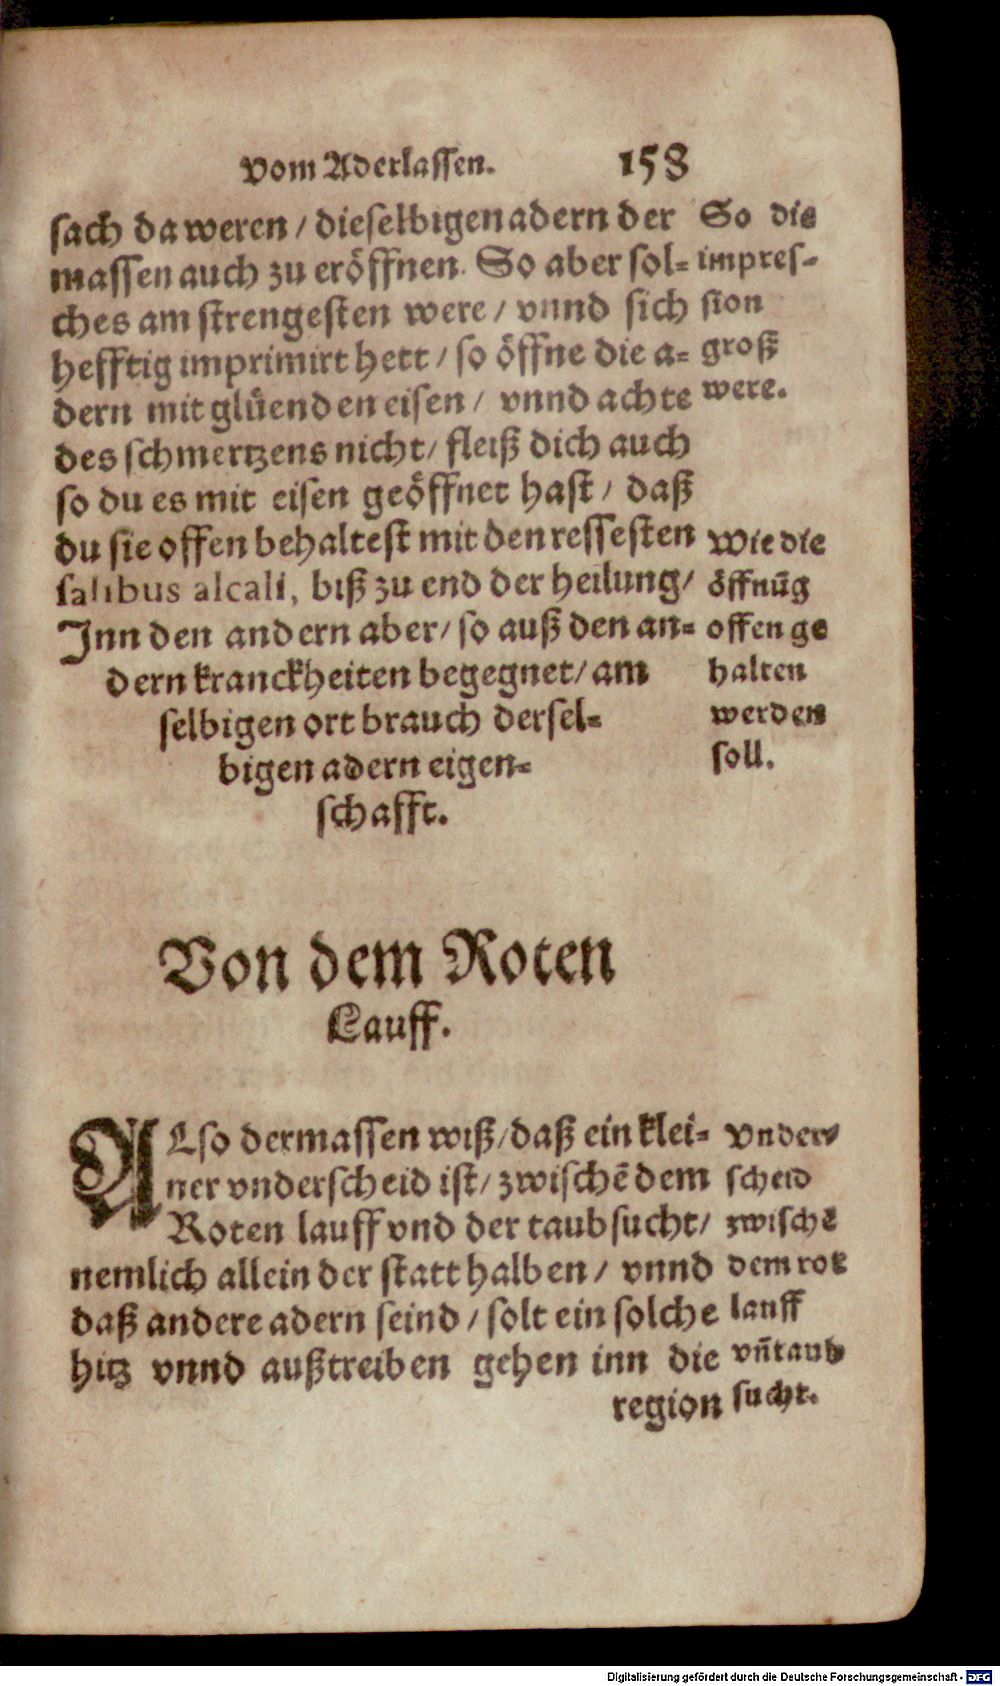 Vom Aderlassen. 158
sach da weren / dieselbigen adern der
massen auch zu eröffnen. So aber sol⸗
ches am strengesten were / vnnd sich
hefftig imprimirt hett / so öffne die a⸗
dern mit glüenden eisen / vnnd achte
des schmertzens nicht / fleiß dich auch
so du es mit eisen geöffnet hast / daß
du sie offen behaltest mit den ressesten
salibus alcali, biß zu end der heilung /
Inn den andern aber / so auß den an⸗
dern kranckheiten begegnet / am
selbigen ort brauch dersel⸗
bigen adern eigen⸗
schafft.
So die
impres⸗
sion
groß
were.
Wie die
öffnūg
offen ge
halten
werden
soll.
Von dem Roten
Lauff.
ALso dermassen wiß / daß ein klei⸗
ner vnderscheid ist / zwischē dem
Roten lauff vnd der taubsucht /
nemlich allein der statt halben / vnnd
daß andere adern seind / solt ein solche
hitz vnnd außtreiben gehen inn die
region
Vnder⸗
scheid
zwischē
dem rot
lauff
vñ taub
sucht.
Digitalisierung gefördert durch die Deutsche Forschungsgemeinschaft - DFG